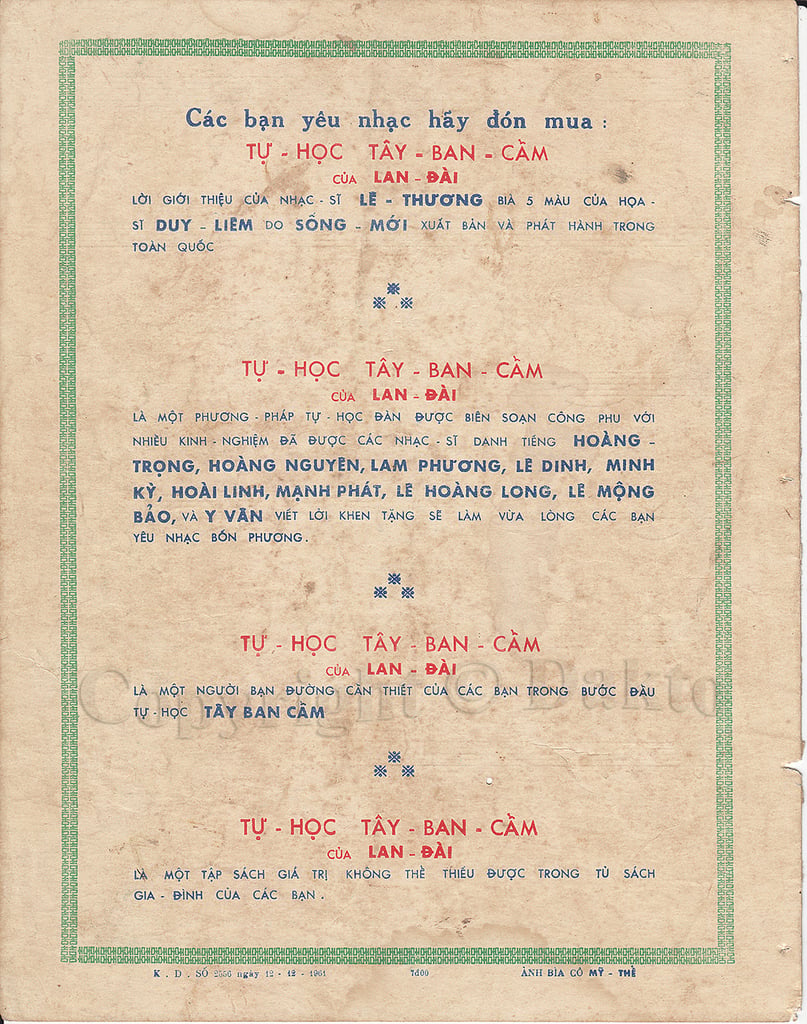 Các bạn yêu nhạc hãy đón mua :
TỰ - HỌC TÂY - BAN - CẦM
CỦA LAN - ĐÀI
LỜI GIỚI THIỆU CỦA NHẠC - SĨ LÊ - THƯƠNG BIÀ 5 MÀU CỦA HỌA -
SĨ DUY - LIÊM DO SỐNG - MỚI XUẤT BẢN VÀ PHÁT HÀNH TRONG
TOÀN QUỐC
TỰ - HỌC TÂY - BAN - CẦM
CỦA LAN - ĐÀI
LÀ MỘT PHƯƠNG - PHÁP TỰ - HỌC ĐÀN ĐƯỢC BIÊN SOẠN CÔNG PHU VỚI
NHIỀU KINH - NGHIỆM ĐÃ ĐƯỢC CÁC NHẠC - SĨ DANH TIẾNG HOÀNG -
TRỌNG, HOÀNG NGUYÊN, LAM PHƯƠNG, LÊ DINH, MINH
KỲ, HOÀI LINH, MẠNH PHÁT, LÊ HOÀNG LONG, LÊ MỘNG
BẢO, VÀ Y VÂN VIẾT LỜI KHEN TẶNG SẼ LÀM VỪA LÒNG CÁC BẠN
YÊU NHẠC BỐN PHƯƠNG .
TỰ - HỌC TÂY - BAN - CẦM
CỦA LAN - ĐÀI
LÀ MỘT NGƯỜI BẠN ĐƯỜNG CẦN THIẾT CỦA CÁC BẠN TRONG BƯỚC ĐẦU
TỰ - HỌC TÂY BAN CẦM
Copyright © Dakto
TỰ - HỌC TÂY - BAN - CẦM
CỦA LAN - ĐÀI
LÀ MỘT TẬP SÁCH GIÁ TRỊ KHÔNG THỂ THIẾU ĐƯỢC TRONG TỦ SÁCH
GIA - ĐÌNH CỦA CÁC BẠN .
K . D . SỐ 2556 ngày 12 - 12 - 1961 7đ00 ẢNH BÌA CÔ MỸ - THỂ